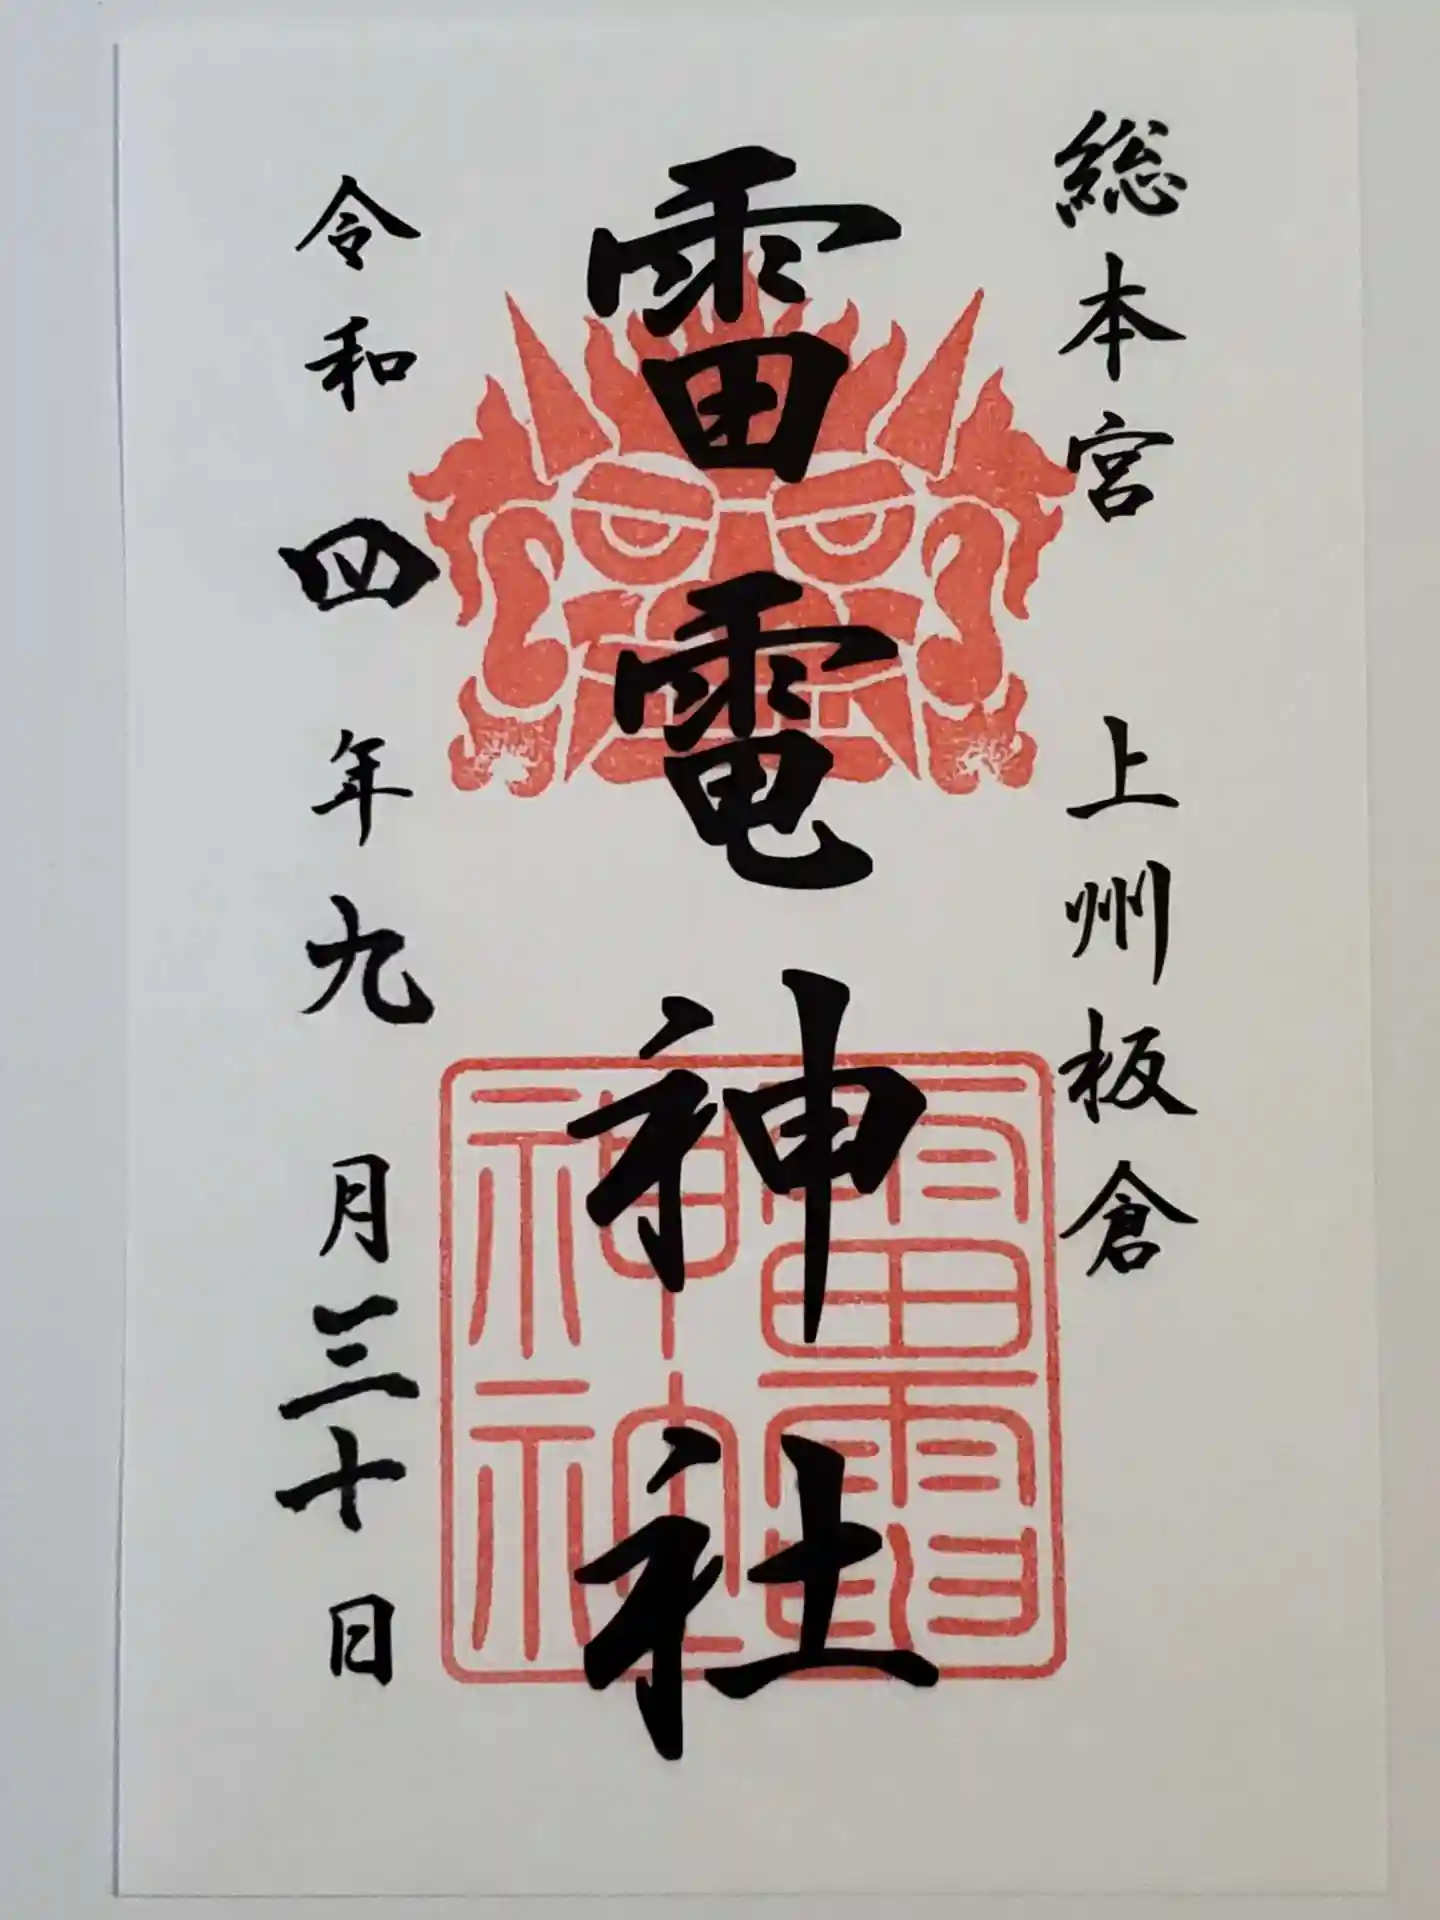 総本宮 上州板倉
雷電神社
令和四年九月三十日